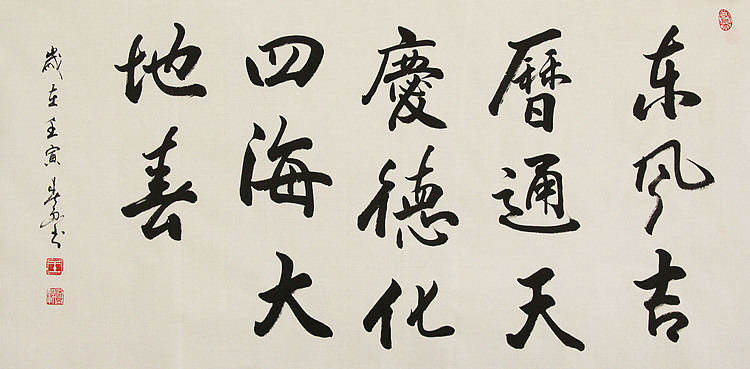 东风吉
曆通天
慶德化
四海大
地春
歲在壬寅